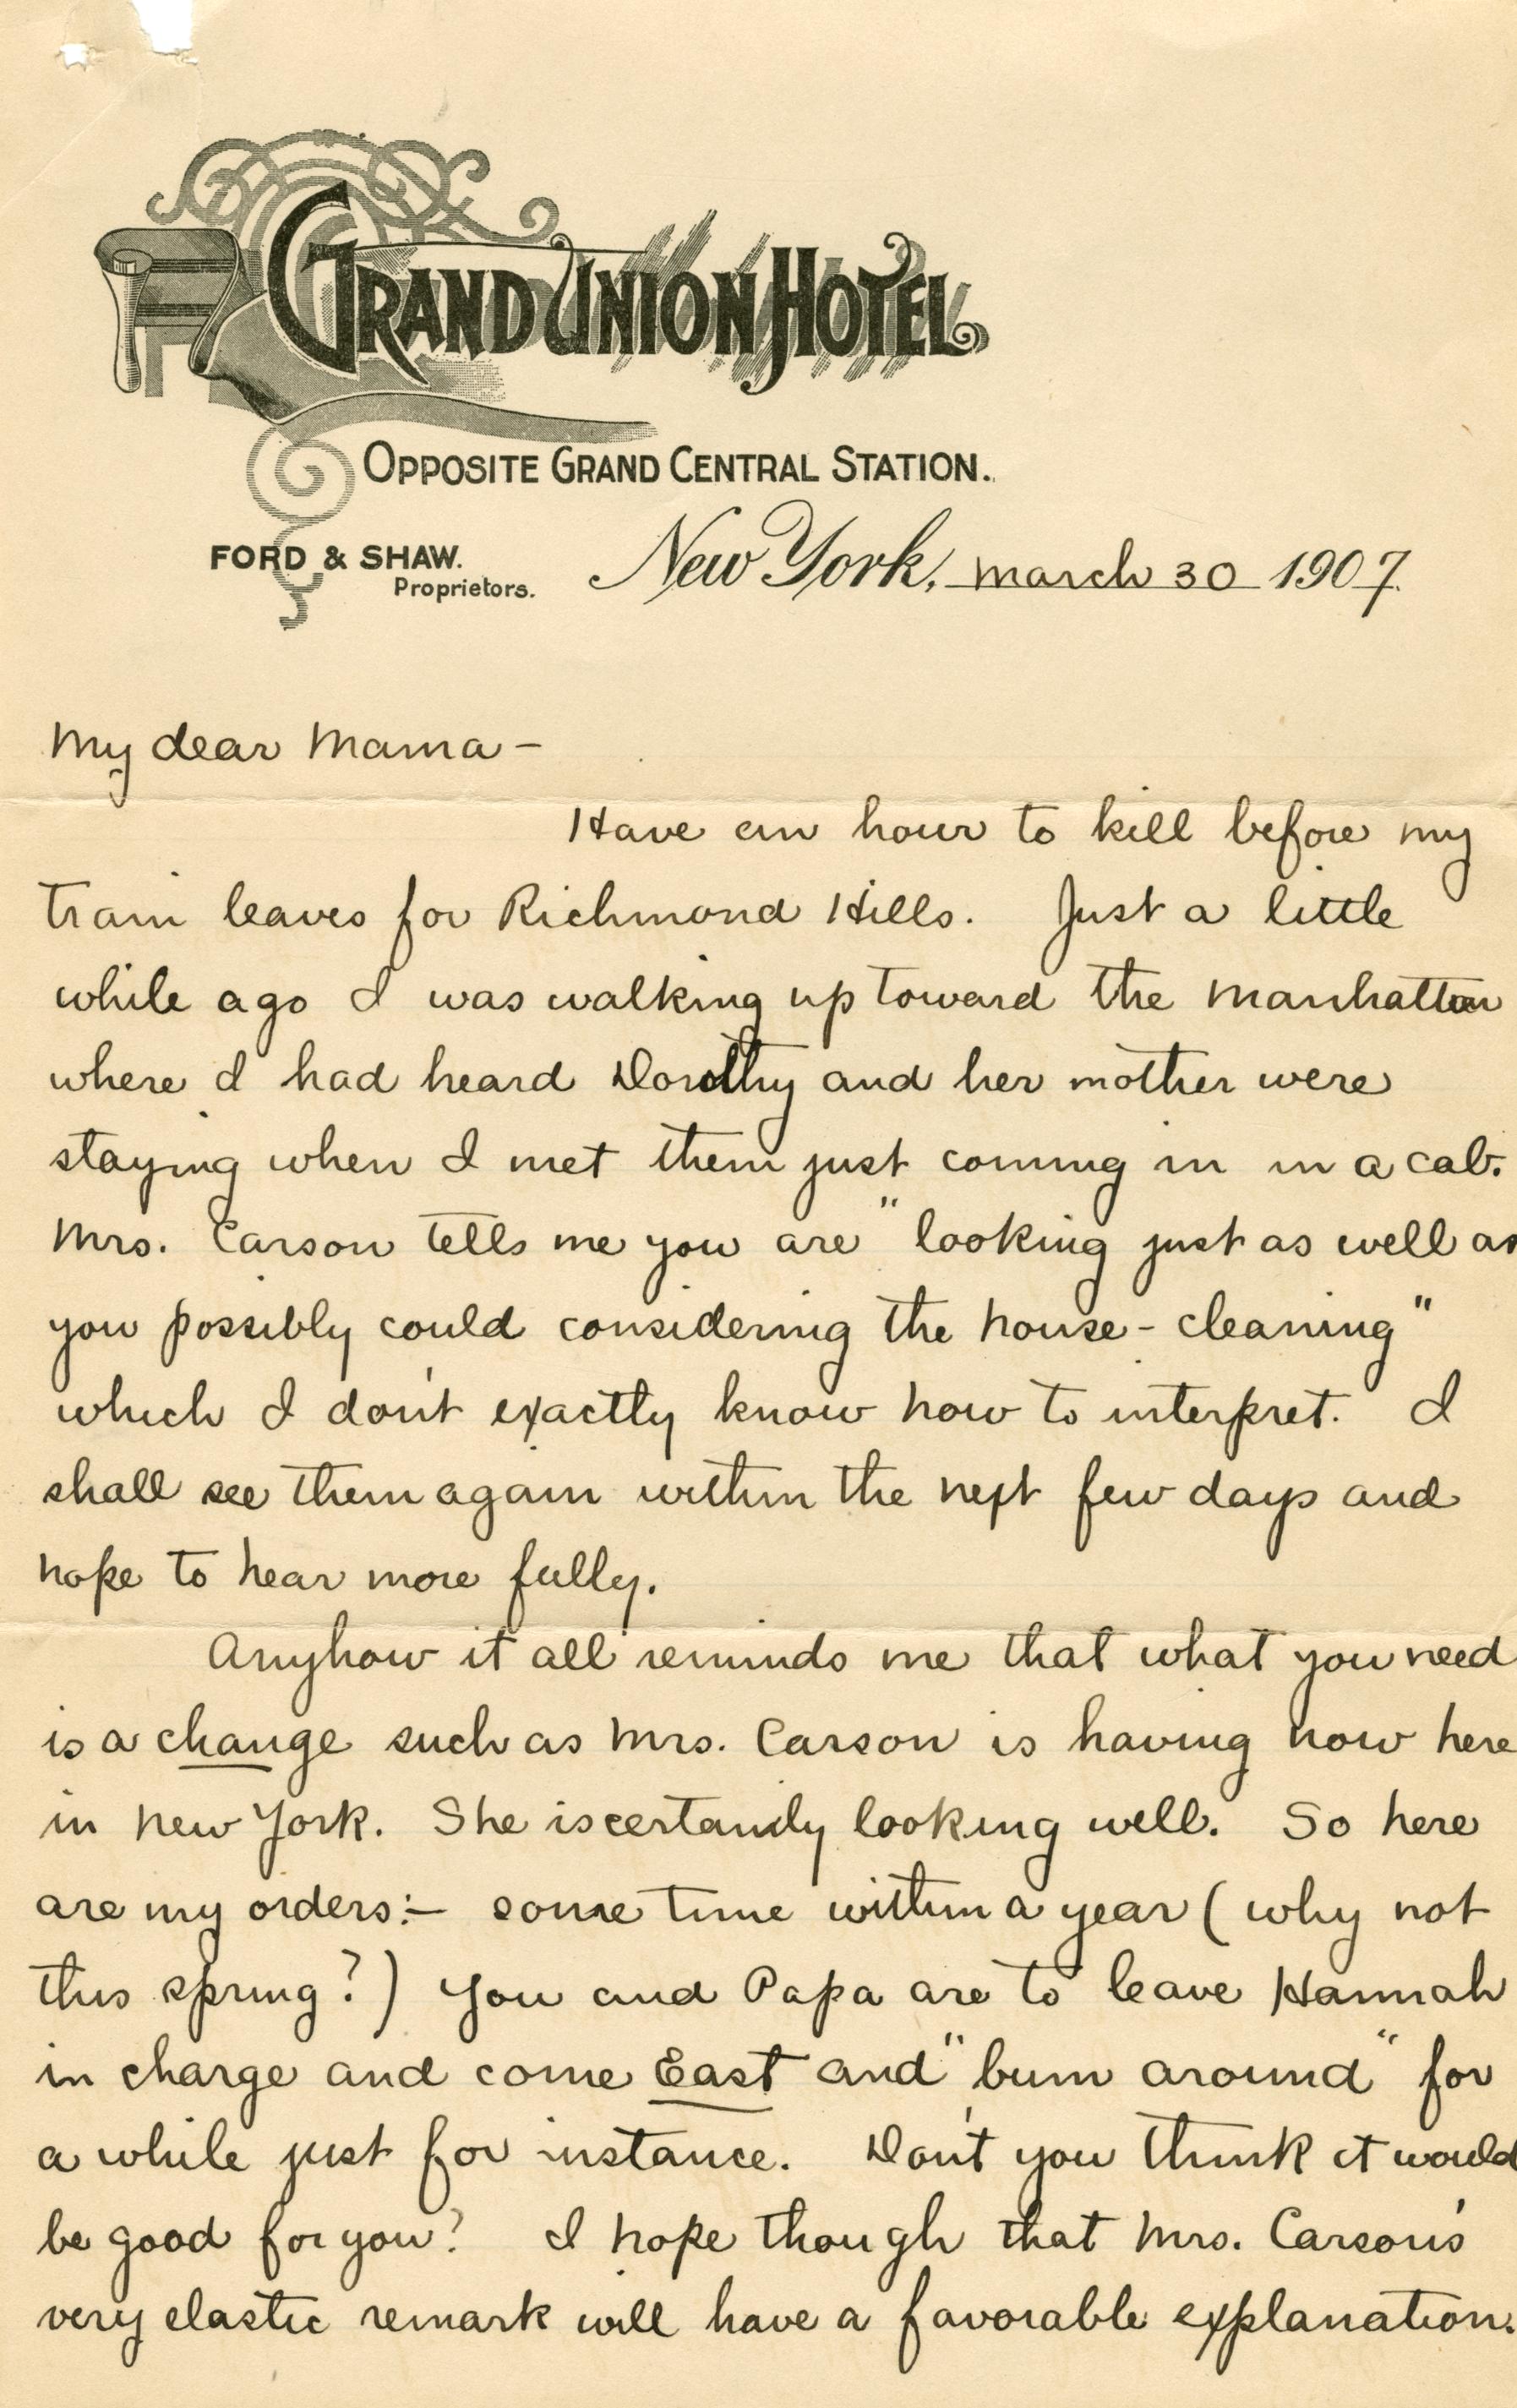 GRAND UNION HOTEL
OPPOSITE GRAND CENTRAL STATION.
FORD & SHAW.
Proprietors.
New York, March 30 1907.
My dear Mama –
Have an hour to kill before my
train leaves for Richmond Hills. Just a little
while ago I was walking up toward the Manhattan
where I had heard Dorothy and her mother were
staying when I met them just coming in in a cab.
Mrs. Carson tells me you are "looking just as well as
you possibly could considering the house-cleaning"
which I don't exactly know how to interpret. I
shall see them again within the next few days and
hope to hear more fully.
Anyhow it all reminds me that what you need
is a change such as Mrs. Carson is having now here
in New York. She is certainly looking well. So here
are my orders:– some time within a year (why not
this spring?) you and Papa are to leave Hannah
in charge and come East and "bum around" for
a while just for instance. Don't you think it would
be good for you? I hope though that Mrs. Carson's
very elastic remark will have a favorable explanation.